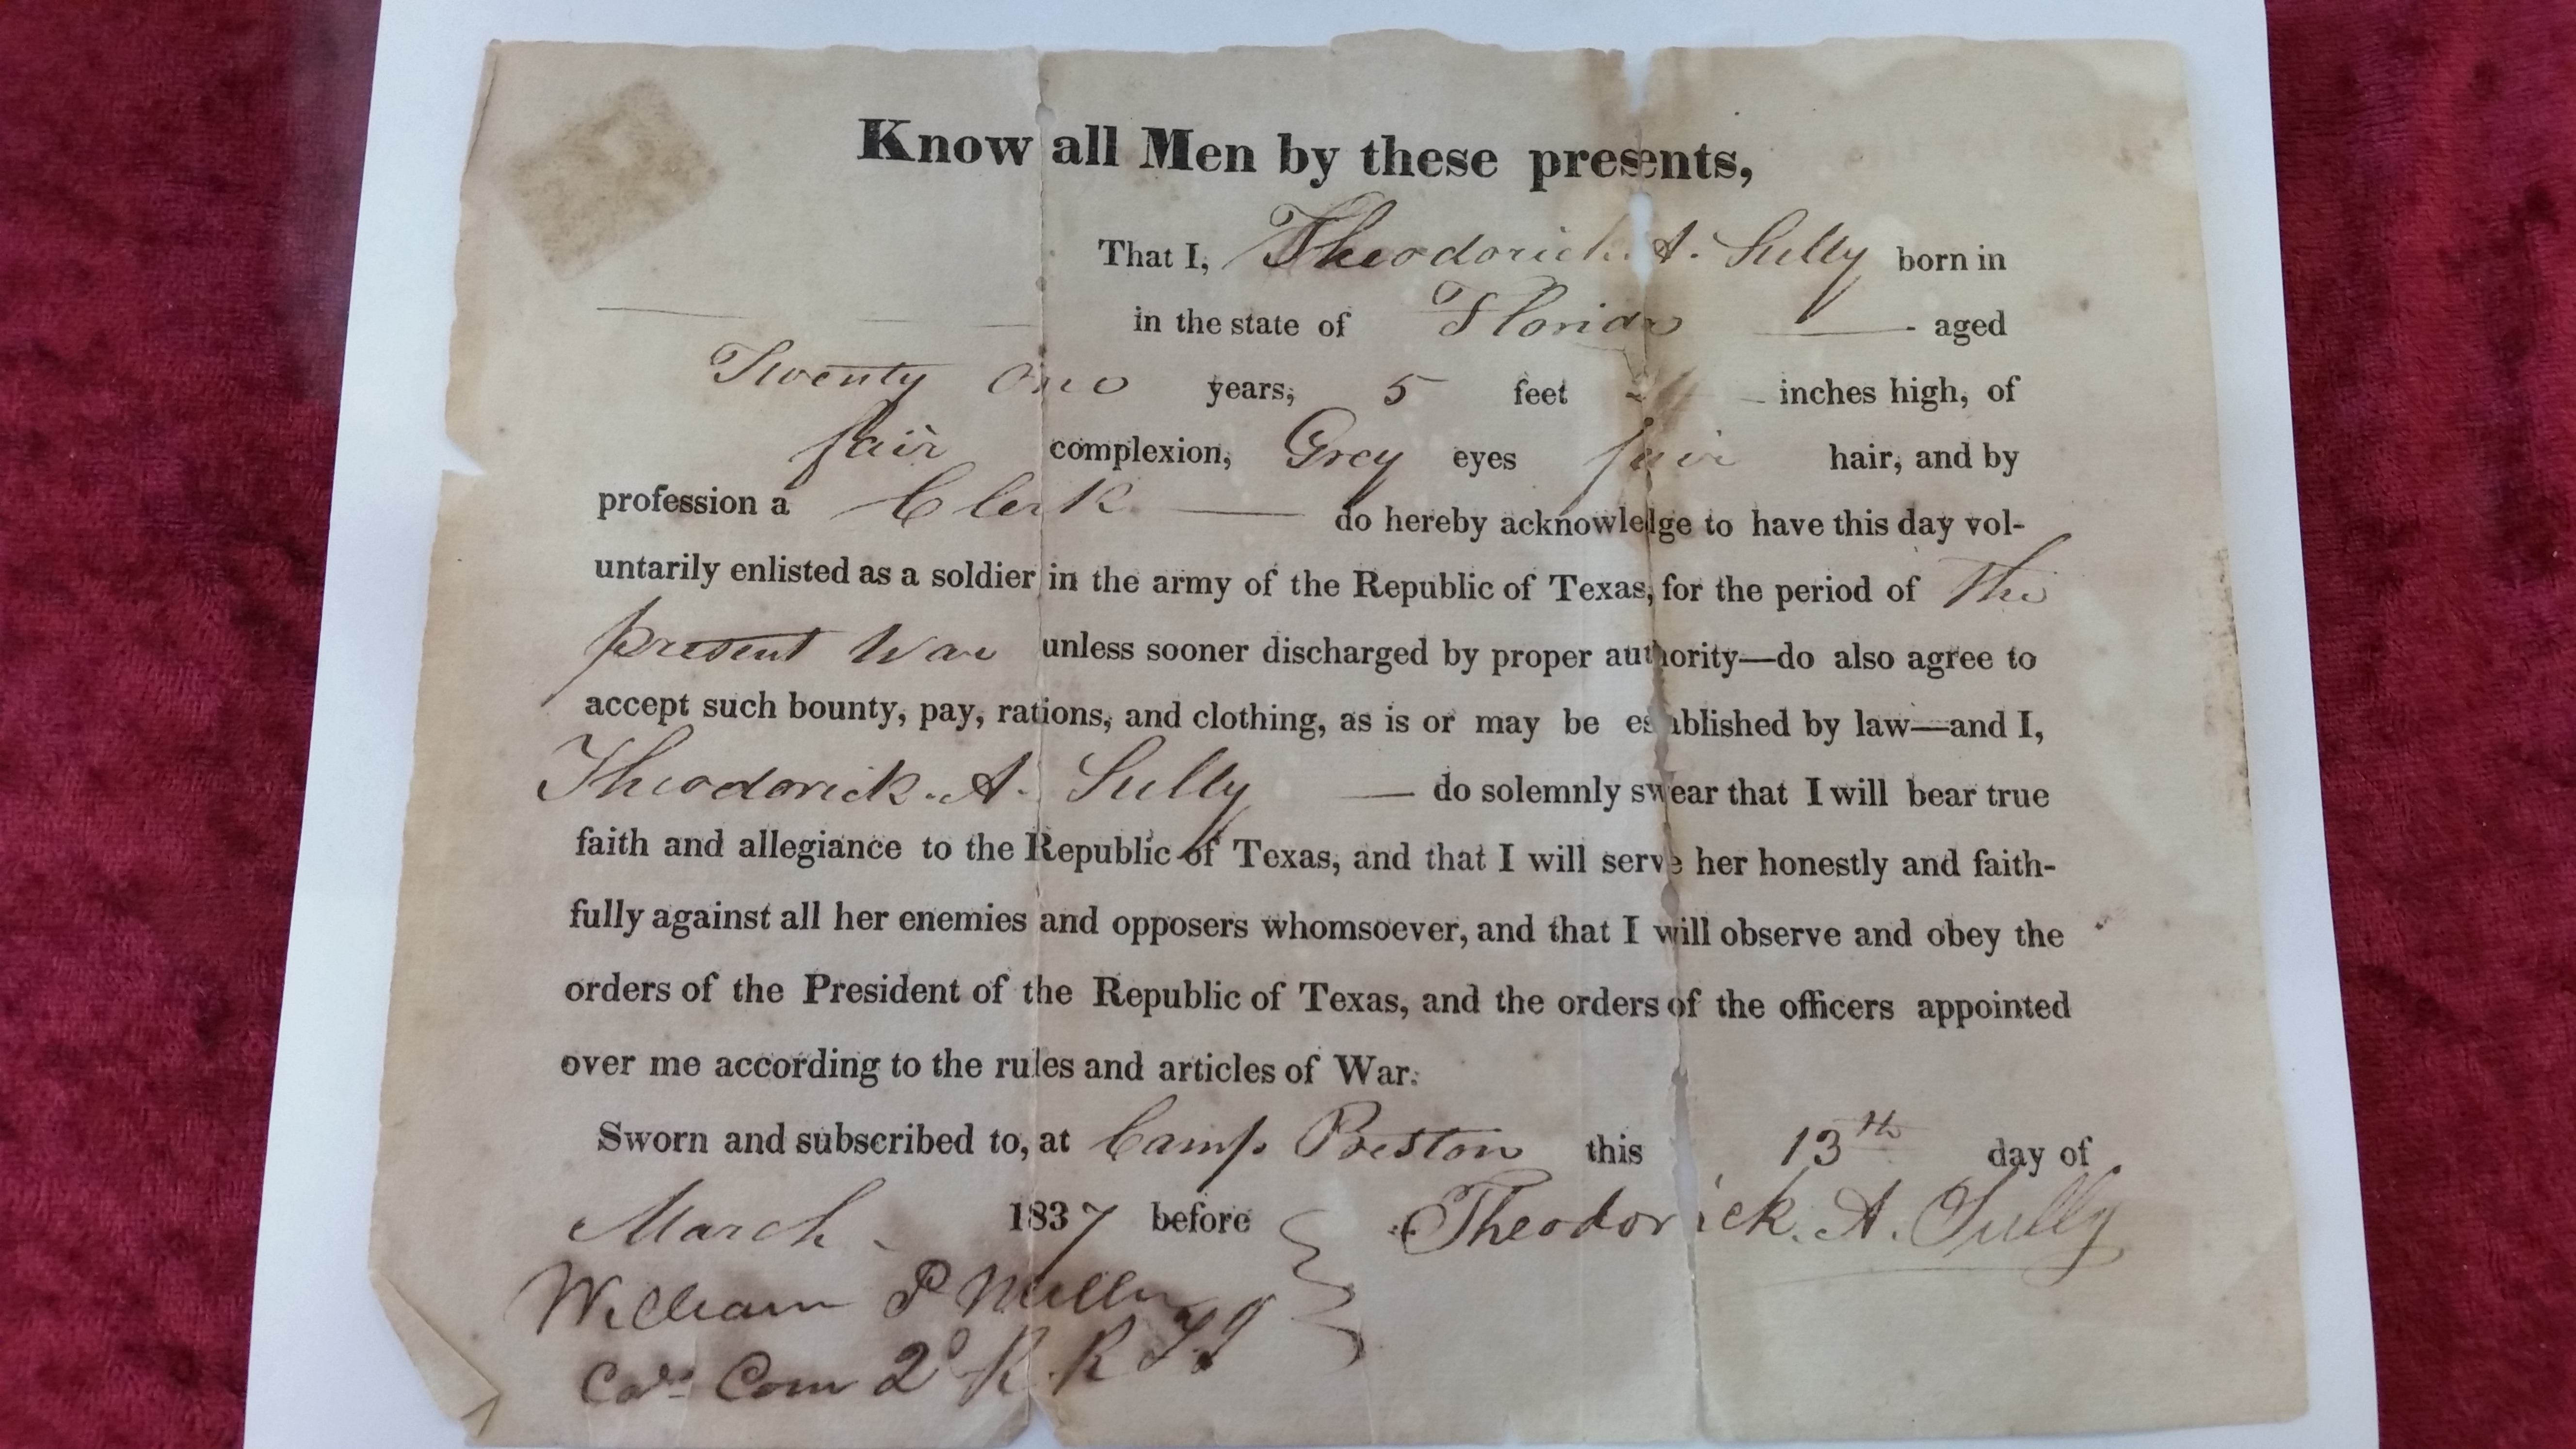 Know all Men by these presents,
That I, Theodorick. A. Sully born in
in the state of Florida aged
Twenty one years, 5 feet inches high, of
fair complexion, Grey eyes fair hair, and by
profession a Clerk do hereby acknowledge to have this day vol-
untarily enlisted as a soldier in the army of the Republic of Texas, for the period of the
present War unless sooner discharged by proper authority—do also agree to
accept such bounty, pay, rations, and clothing, as is or may be established by law—and I,
Theodorick. A. Sully — do solemnly swear that I will bear true
faith and allegiance to the Republic of Texas, and that I will serve her honestly and faith-
fully against all her enemies and opposers whomsoever, and that I will observe and obey the
orders of the President of the Republic of Texas, and the orders of the officers appointed
over me according to the rules and articles of War.
Sworn and subscribed to, at Camp Preston this 13th day of
March 1837 before Theodorick. A. Sully
William P Miller
Com 2d